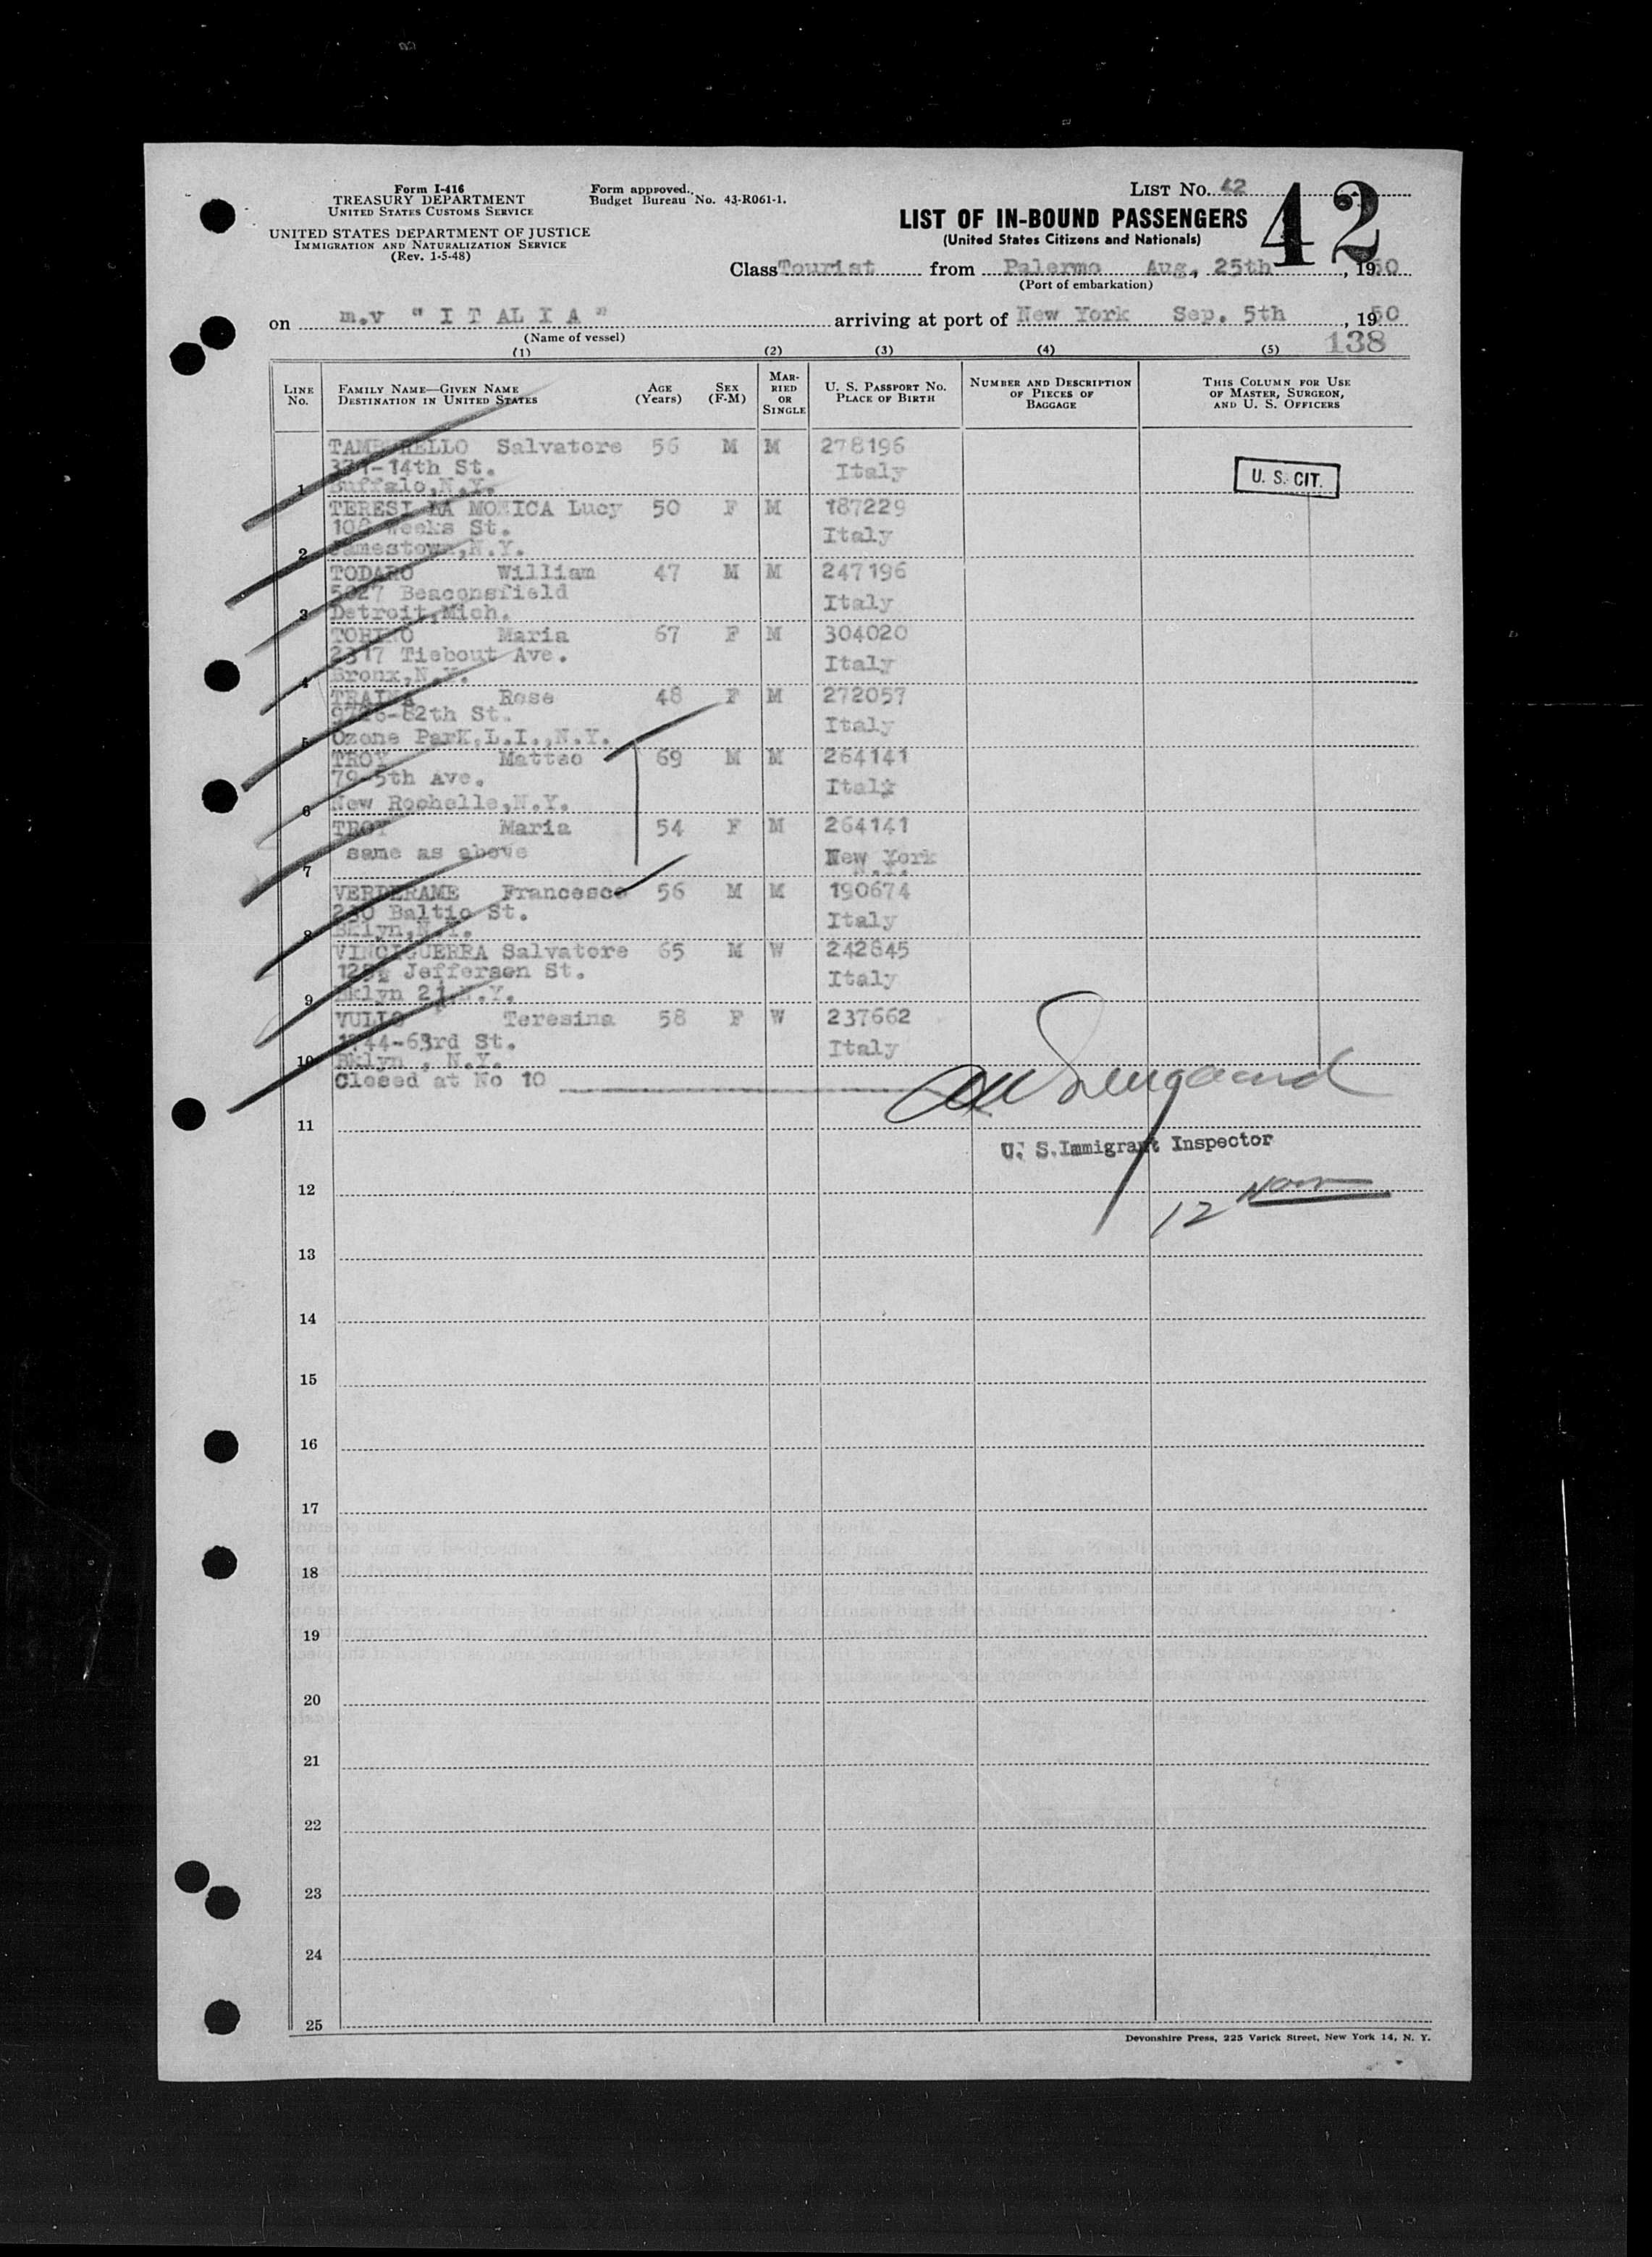 Form I-416
TREASURY DEPARTMENT
UNITED STATES CUSTOMS SERVICE
UNITED STATES DEPARTMENT OF JUSTICE
IMMIGRATION AND NATURALIZATION SERVICE
(Rev. 1-5-48)
Form approved.
Budget Bureau No. 43-R061-1.
LIST No. 42
42
LIST OF IN-BOUND PASSENGERS
(United States Citizens and Nationals)
Class Tourist from Palermo Aug, 25th, 1950
(Port of embarkation)
on m.v "I T AL I A" arriving at port of New York Sep. 5th, 1950
(Name of vessel)
138
(1) (2) (3) (4) (5)
LINE No. FAMILY NAME—GIVEN NAME DESTINATION IN UNITED STATES AGE (Years) SEX (F-M) MARRIED OR SINGLE U. S. PASSPORT No. PLACE OF BIRTH NUMBER AND DESCRIPTION OF PIECES OF BAGGAGE THIS COLUMN FOR USE OF MASTER, SURGEON, AND U. S. OFFICERS
TAMBURELLO Salvatore 56 M M 278196
14th St. Italy
1 Buffalo,N.Y.
U. S. CIT.
TERESI LA MONICA Lucy 50 F M 187229
Weeks St. Italy
2 Jamestown,N.Y.
TODARO William 47 M M 247196
5027 Beaconsfield
3 Detroit,Mich. Italy
TORINO Maria 67 F M 304020
Tiebout Ave. Italy
4 Bronx,N.Y.
TRAINA Rose 48 F M 272057
82th St. Italy
5 Ozone Park,L.I.,N.Y.
TROY Matteo 69 M M 264141
79-5th Ave. Italy
6 New Rochelle,N.Y.
TROY Maria 54 F M 264141
same as above New York
7 N.Y.
VERDERAME Francesco 56 M M 190674
230 Baltic St. Italy
8 Bklyn,N.Y.
VINCIGUERRA Salvatore 65 M W 242845
Jefferson St. Italy
9 Bklyn 21,N.Y.
VULLO Teresina 58 F W 237662
1744-63rd St. Italy
10 Bklyn , N.Y.
Closed at No 10
11
U. S. Immigrant Inspector
12
12 Noon
13
14
15
16
17
18
19
20
21
22
23
24
25
Devonshire Press, 225 Varick Street, New York 14, N. Y.